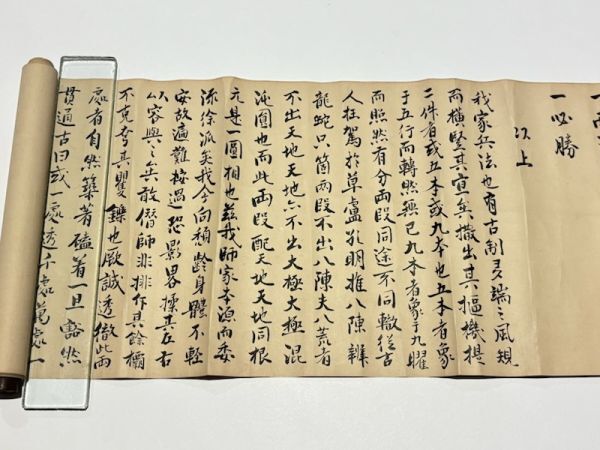 一必勝
以上
我家兵法也有古制多端之風規
而横竪其宜矣撒出其樞機提
二件者或五本或九本也五本者象
于五行而轉然無已九本者象于九曜
而照然有分両段同途不同轍従古
人枉駕於草廬孔明推八陳辨
龍蛇只箇両段不出八陳夫八荒者
不出天地天地亦不出大極大極混
沌圓也而此両段配天地天地同根
元是一圓相也茲我師家本源而委
流徐派矣我今向頽齢身體不輕
安故遍難按過恐影畧採其左右
以容與之共敢僭師非排作具餘
不克夸其矍鑠也厥誠透徹此両
處者自然築著磕着一旦豁然
貫通古曰或一處透千處萬處一